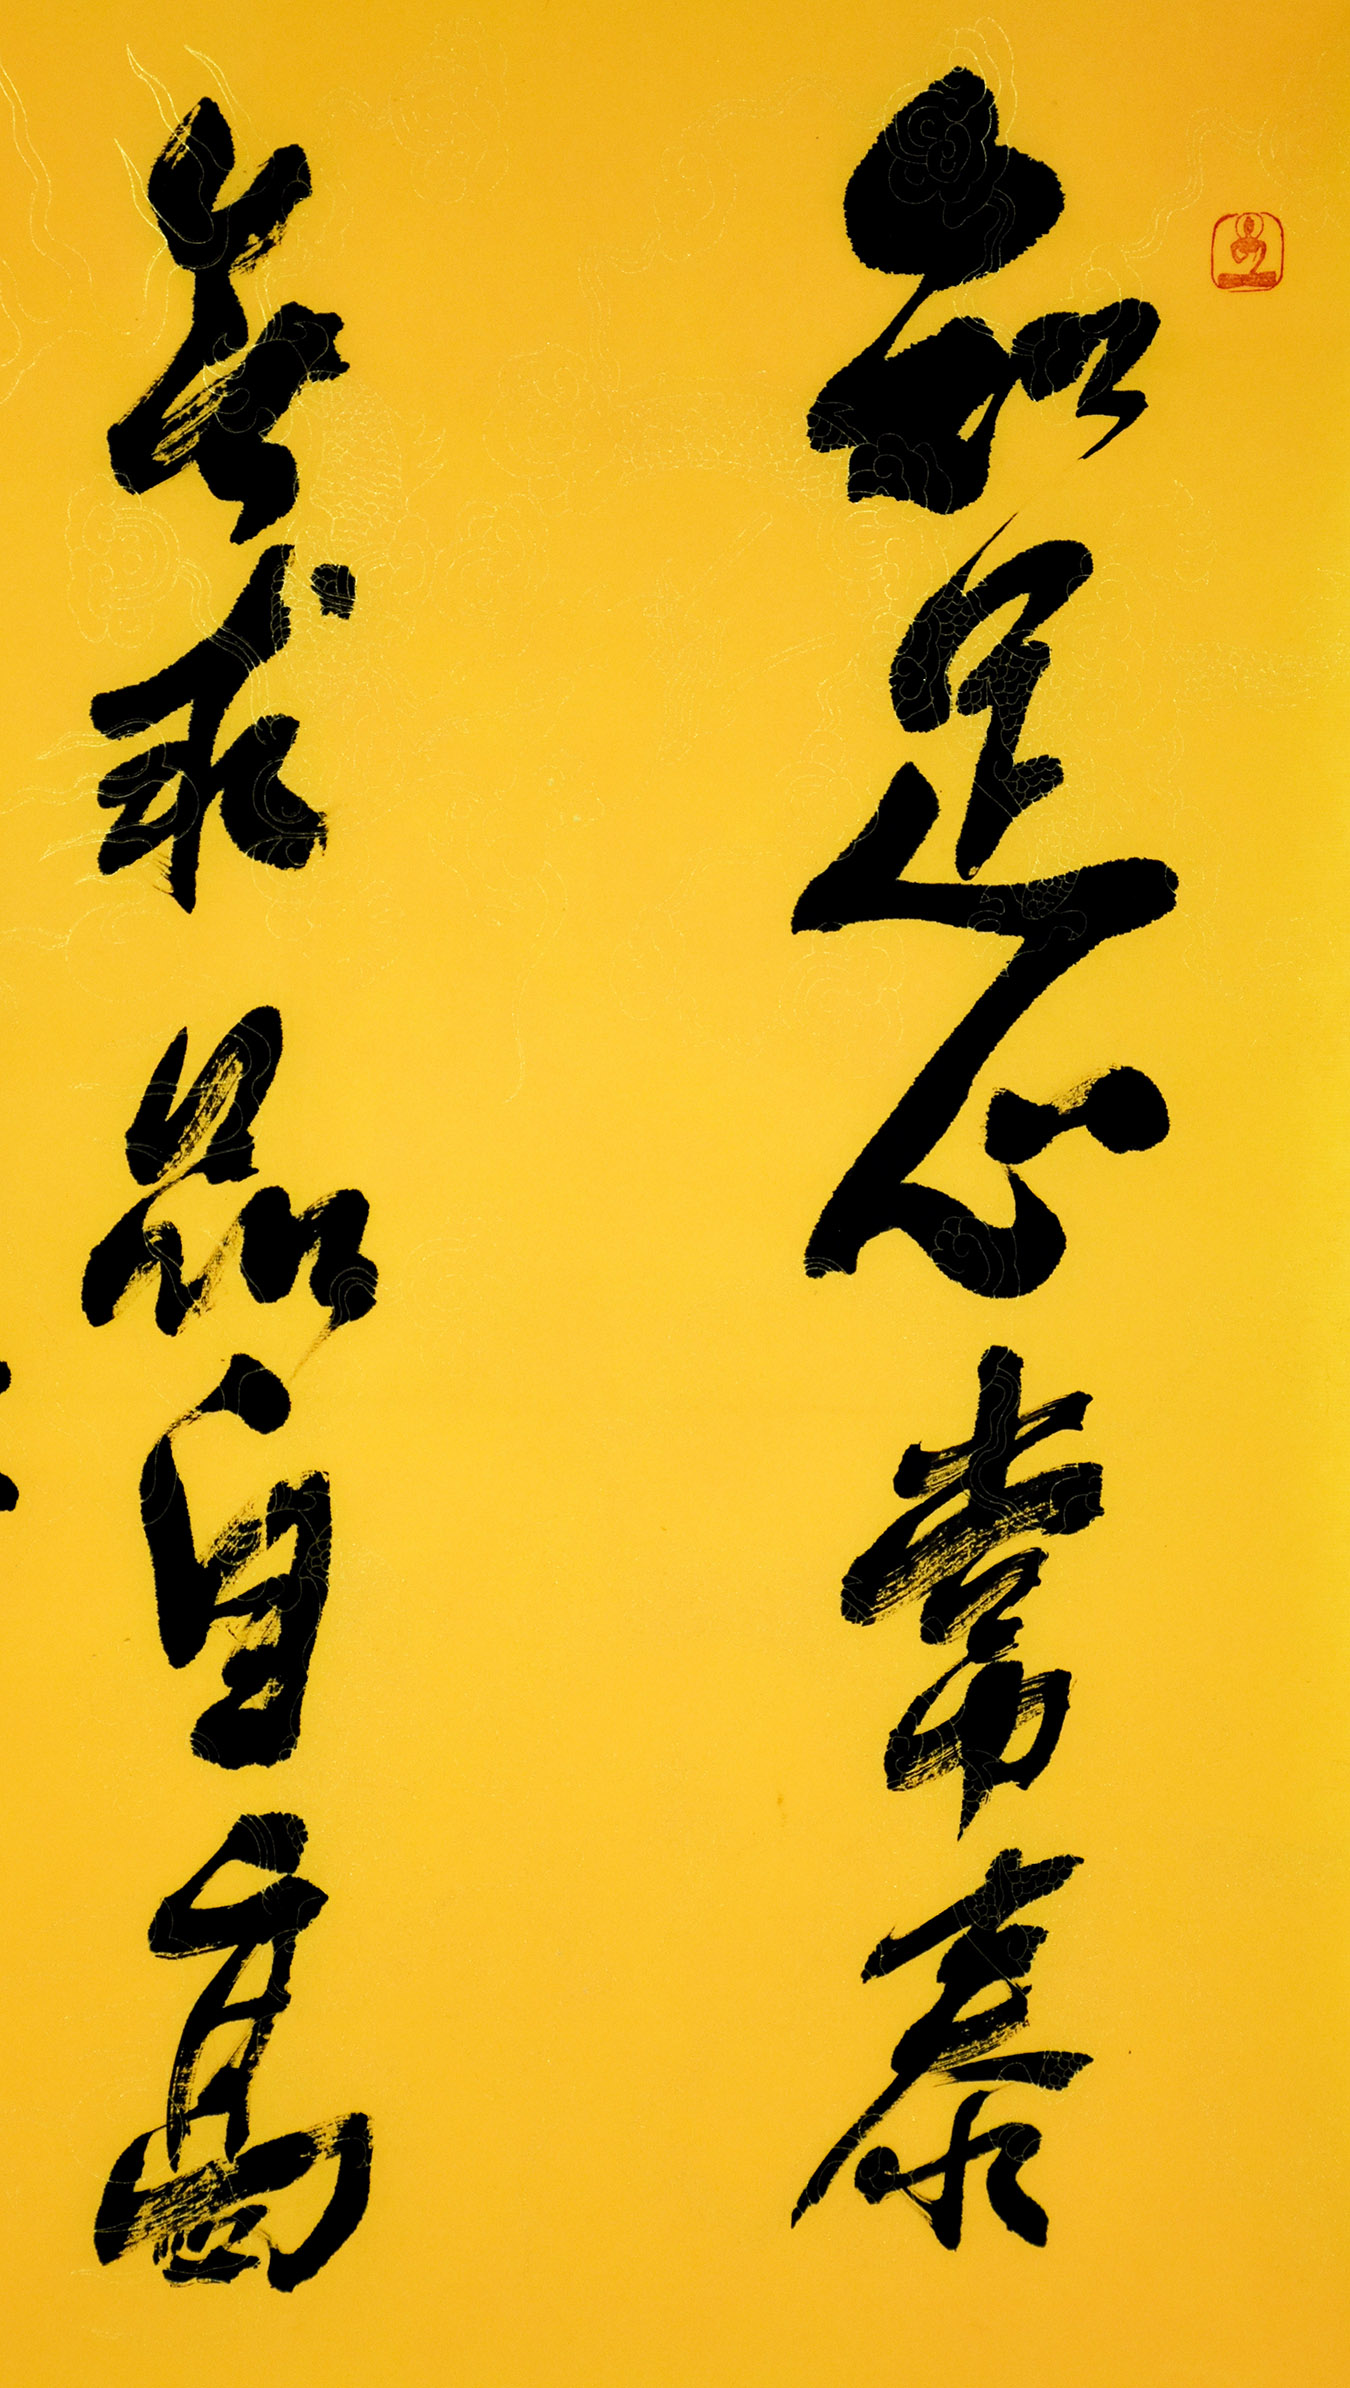 知足心常泰
無求品自高